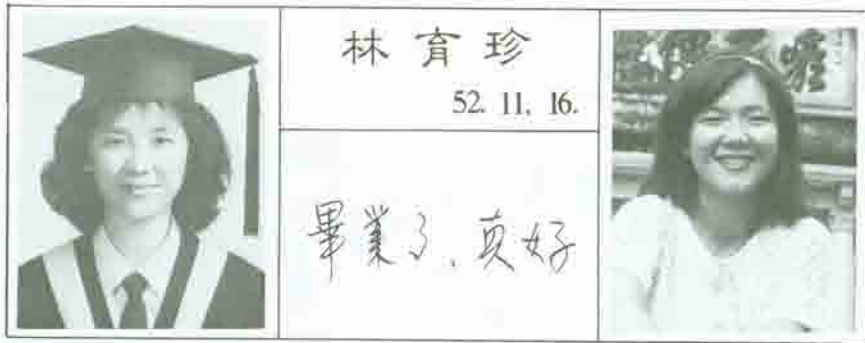 林育珍
52. 11. 16.
畢業了、真好